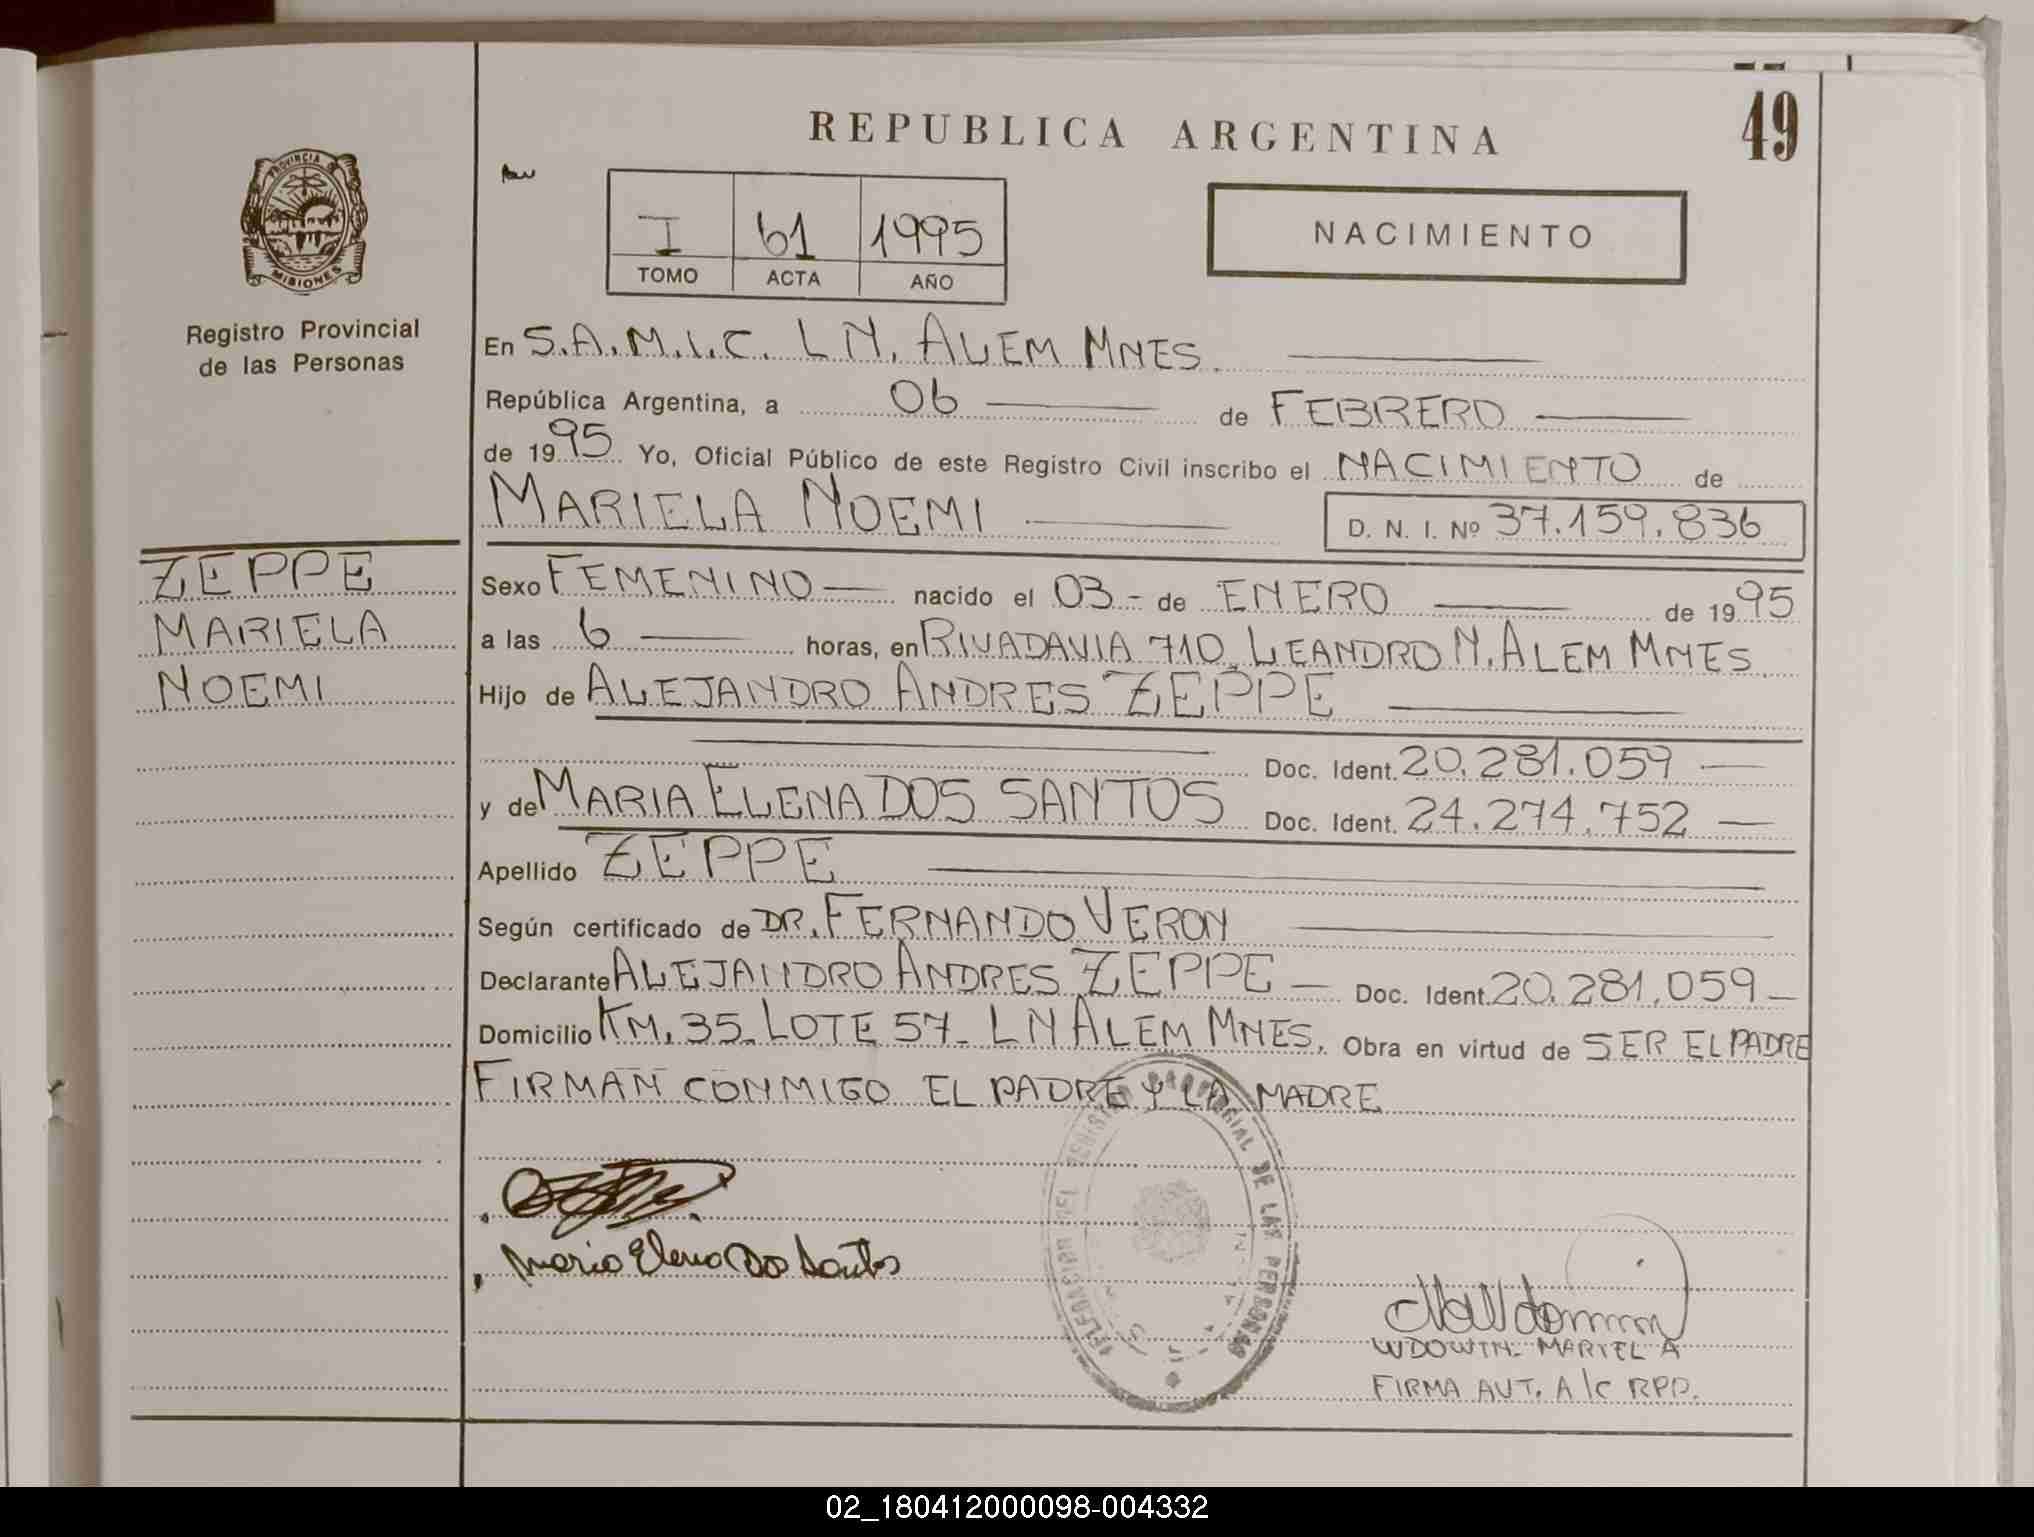 49
REPUBLICA ARGENTINA
PROVINCIA DE
MISIONES
Registro Provincial
de las Personas
I 61 1995
TOMO ACTA AÑO
NACIMIENTO
En S.A.M.I.C. L N. ALEM MNES.
República Argentina, a 06 de FEBRERO
de 1995 Yo, Oficial Público de este Registro Civil inscribo el NACIMIENTO de
MARIELA NOEMI D. N. I. Nº 37.159.836
ZEPPE
MARIELA
NOEMI
Sexo FEMENINO nacido el 03 - de ENERO de 1995
a las 6 horas, en RIVADAVIA 710, LEANDRO N. ALEM MNES.
Hijo de ALEJANDRO ANDRES ZEPPE
Doc. Ident. 20.281.059
y de MARIA ELENA DOS SANTOS Doc. Ident. 24.274.752
Apellido ZEPPE
Según certificado de DR. FERNANDO VERON
Declarante ALEJANDRO ANDRES ZEPPE Doc. Ident. 20.281.059
Domicilio KM. 35. LOTE 57 - L N ALEM MNES. Obra en virtud de SER EL PADRE
FIRMAN CONMIGO EL PADRE Y LA MADRE
DEL REGISTRO PROVINCIAL DE LAS PERSONAS
Maria Elena Dos Santos
MARIEL A
FIRMA AUT. A/C RPD.
02_180412000098-004332